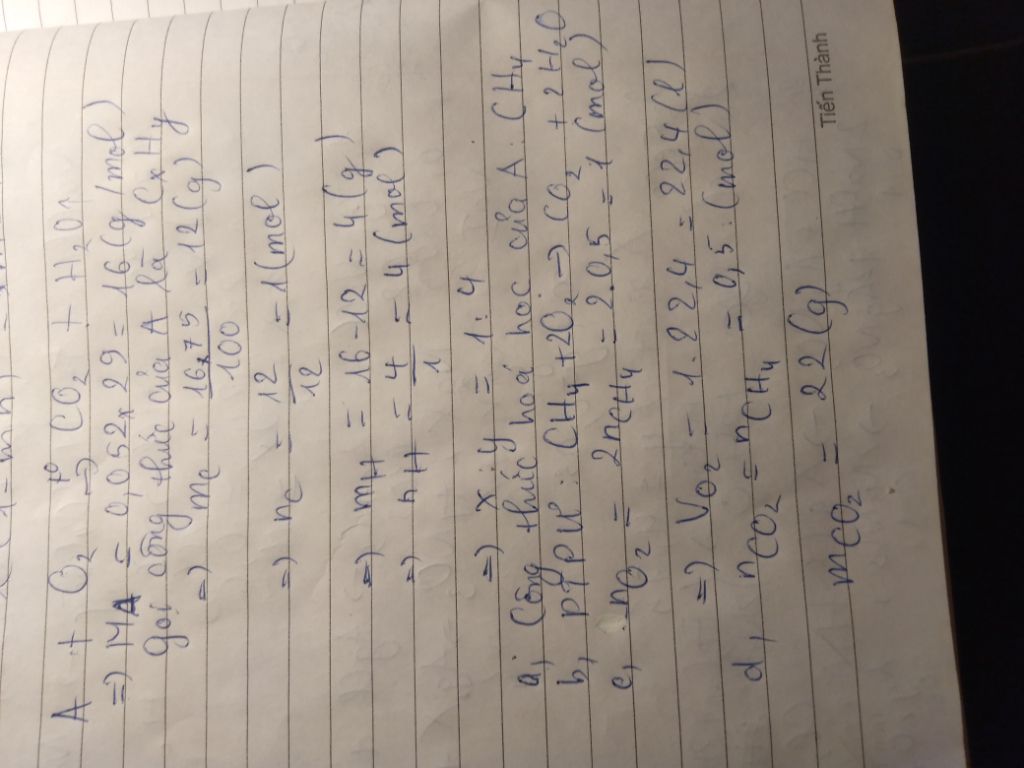 A + O₂ →t° CO₂ + H₂O↑
=) MA = 0,052 x 29 = 16 (g/mol)
Gọi công thức của A là CxHy
=) mC = 16x75/100 = 12 (g)
=) nC = 12/12 = 1 (mol)
=) mH = 16 - 12 = 4 (g)
=) nH = 4/1 = 4 (mol)
=) x : y = 1 : 4
a, Công thức hoá học của A : CH₄
b, PTPƯ : CH₄ + 2O₂ → CO₂ + 2H₂O
c, nO₂ = 2nCH₄ = 2.0,5 = 1 (mol)
=) VO₂ = 1.22,4 = 22,4 (l)
d, nCO₂ = nCH₄ = 0,5 (mol)
mCO₂ = 22 (g)
Tiến Thành